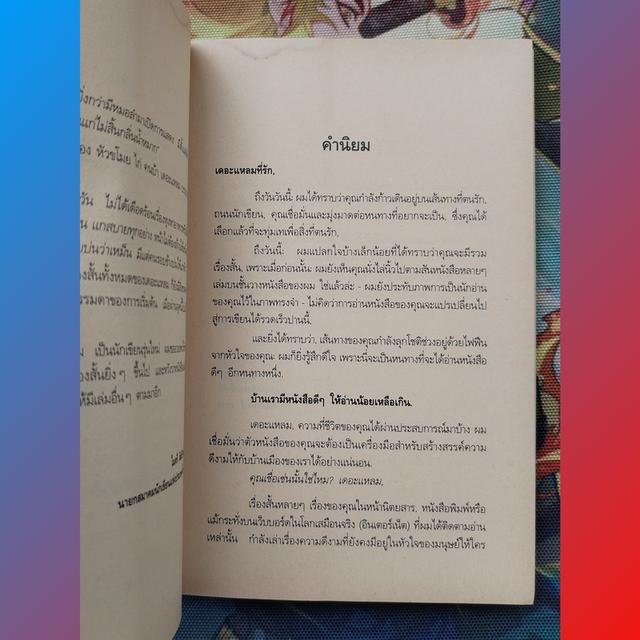 ยิ่งกว่ามีหมอลำมาเปิดการแสดง
แก่ไม่สิ้นกลิ่นน้ำหมาก"
หัวขโมย ไก่ คนบ้า เดอะแหลม
วัน ไม่ได้เดือดร้อน
แกสบายทุกอย่าง
บ่นว่าเหม็น
สั้นทั้งหมดของเดอะแหลม
รรมดาของการเริ่มต้น
เป็นนักเขียนรุ่นใหม่
องสั้นยิ่งๆ ขึ้นไป
ห้มีเล่มอื่นๆ ตามมาอีก
นายกสมาคมนักเขียน
คำนิยม
เดอะแหลมที่รัก,
ถึงวันวันนี้: ผมได้ทราบว่าคุณกำลังก้าวเดินอยู่บนเส้นทางที่ตนรัก,
ถนนนักเขียน, คุณเชื่อมั่นและมุ่งมาดต่อหนทางที่อยากจะเป็น, ซึ่งคุณได้
เลือกแล้วที่จะทุ่มเทเพื่อสิ่งที่ตนรัก.
ถึงวันนี้: ผมแปลกใจบ้างเล็กน้อยที่ได้ทราบว่าคุณจะมีรวม
เรื่องสั้น, เพราะเมื่อก่อนนั้น: ผมยังเห็นคุณนั่งไล่นิ้วไปตามสันหนังสือหลายๆ
เล่มบนชั้นวางหนังสือของผม ใช่แล้วล่ะ - ผมยังประทับภาพการเป็นนักอ่าน
ของคุณไว้ในภาพทรงจำ - ไม่คิดว่าการอ่านหนังสือของคุณจะแปรเปลี่ยนไป
สู่การเขียนได้รวดเร็วปานนี้.
และยิ่งได้ทราบว่า, เส้นทางของคุณกำลังลุกโชติช่วงอยู่ด้วยไฟฝืน
จากหัวใจของคุณ: ผมก็ยิ่งรู้สึกดีใจ เพราะนี่จะเป็นหนทางที่จะได้อ่านหนังสือ
ดีๆ อีกหนทางหนึ่ง.
บ้านเรามีหนังสือดีๆ ให้อ่านน้อยเหลือเกิน.
เดอะแหลม, ความที่ชีวิตของคุณได้ผ่านประสบการณ์มาบ้าง ผม
เชื่อมั่นว่าตัวหนังสือของคุณจะต้องเป็นเครื่องมือสำหรับสร้างสรรค์ความ
ดีงามให้กับบ้านเมืองของเราได้อย่างแน่นอน.
คุณเชื่อเช่นนั้นใช่ไหม? เดอะแหลม,
เรื่องสั้นหลายๆ เรื่องของคุณในหน้านิตยสาร, หนังสือพิมพ์หรือ
แม้กระทั่งบนเว็บบอร์ดในโลกเสมือนจริง (อินเตอร์เน็ต) ที่ผมได้ติดตามอ่าน
เหล่านั้น กำลังเล่าเรื่องความดีงามที่ยังคงมีอยู่ในหัวใจของมนุษย์ให้ใคร